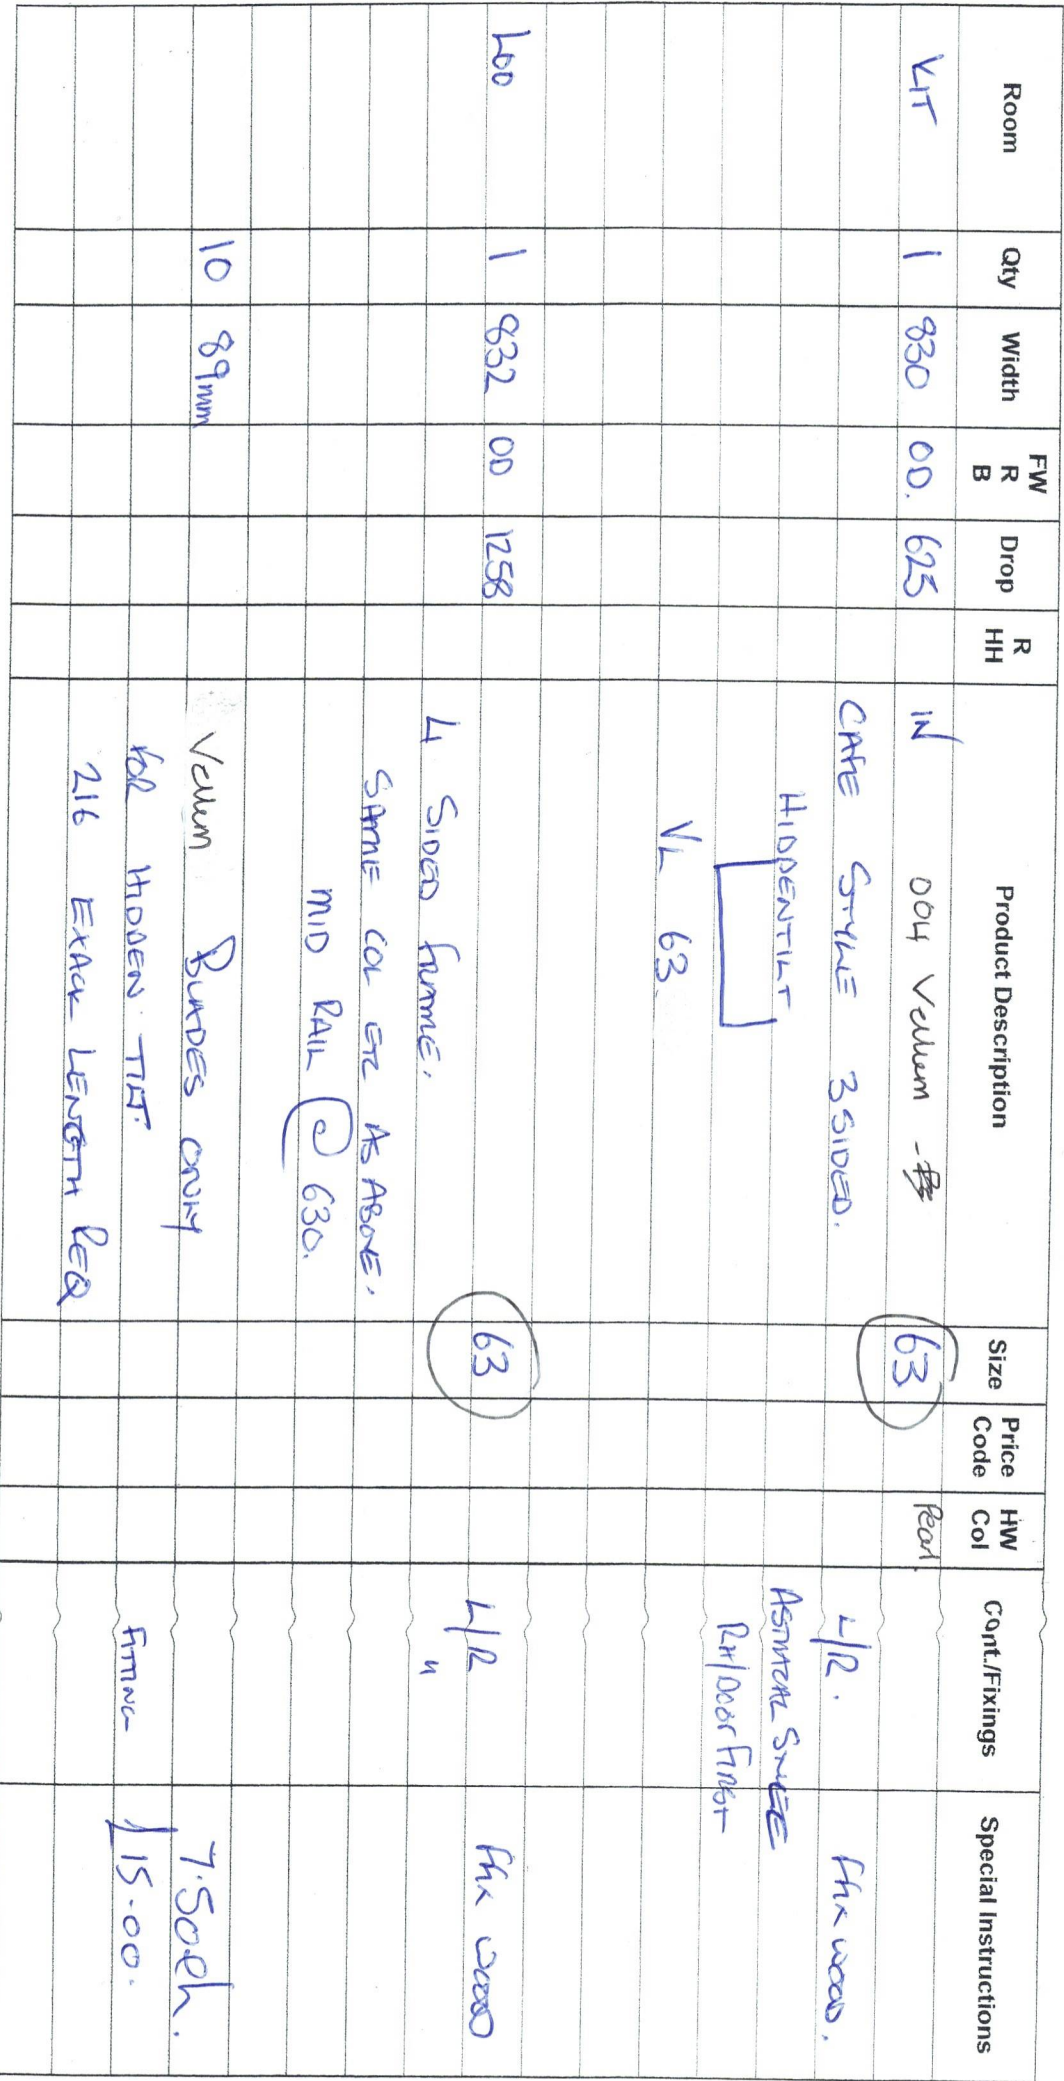 Room Qty Width FW R B Drop R HH Product Description Size Price Code HW Col Cont./Fixings Special Instructions
KIT 1 830 OD. 625 IN 004 Vellum - 63 Pearl
CAFE STYLE 3 SIDED. L/R. FAX WOOD.
HIDDENTILT ASTRAGAL STYLE
RH/Door First
VL 63
LOO 1 832 OD 1258 63 L/R FAX WOOD
4 SIDED FRAME. "
SAME COL ETC AS ABOVE.
MID RAIL @ 630.
10 89mm Vellum BLADES ONLY 7.50eh.
FOR HIDDEN TILT. FITTING £15.00.
216 EXACK LENGTH REQ